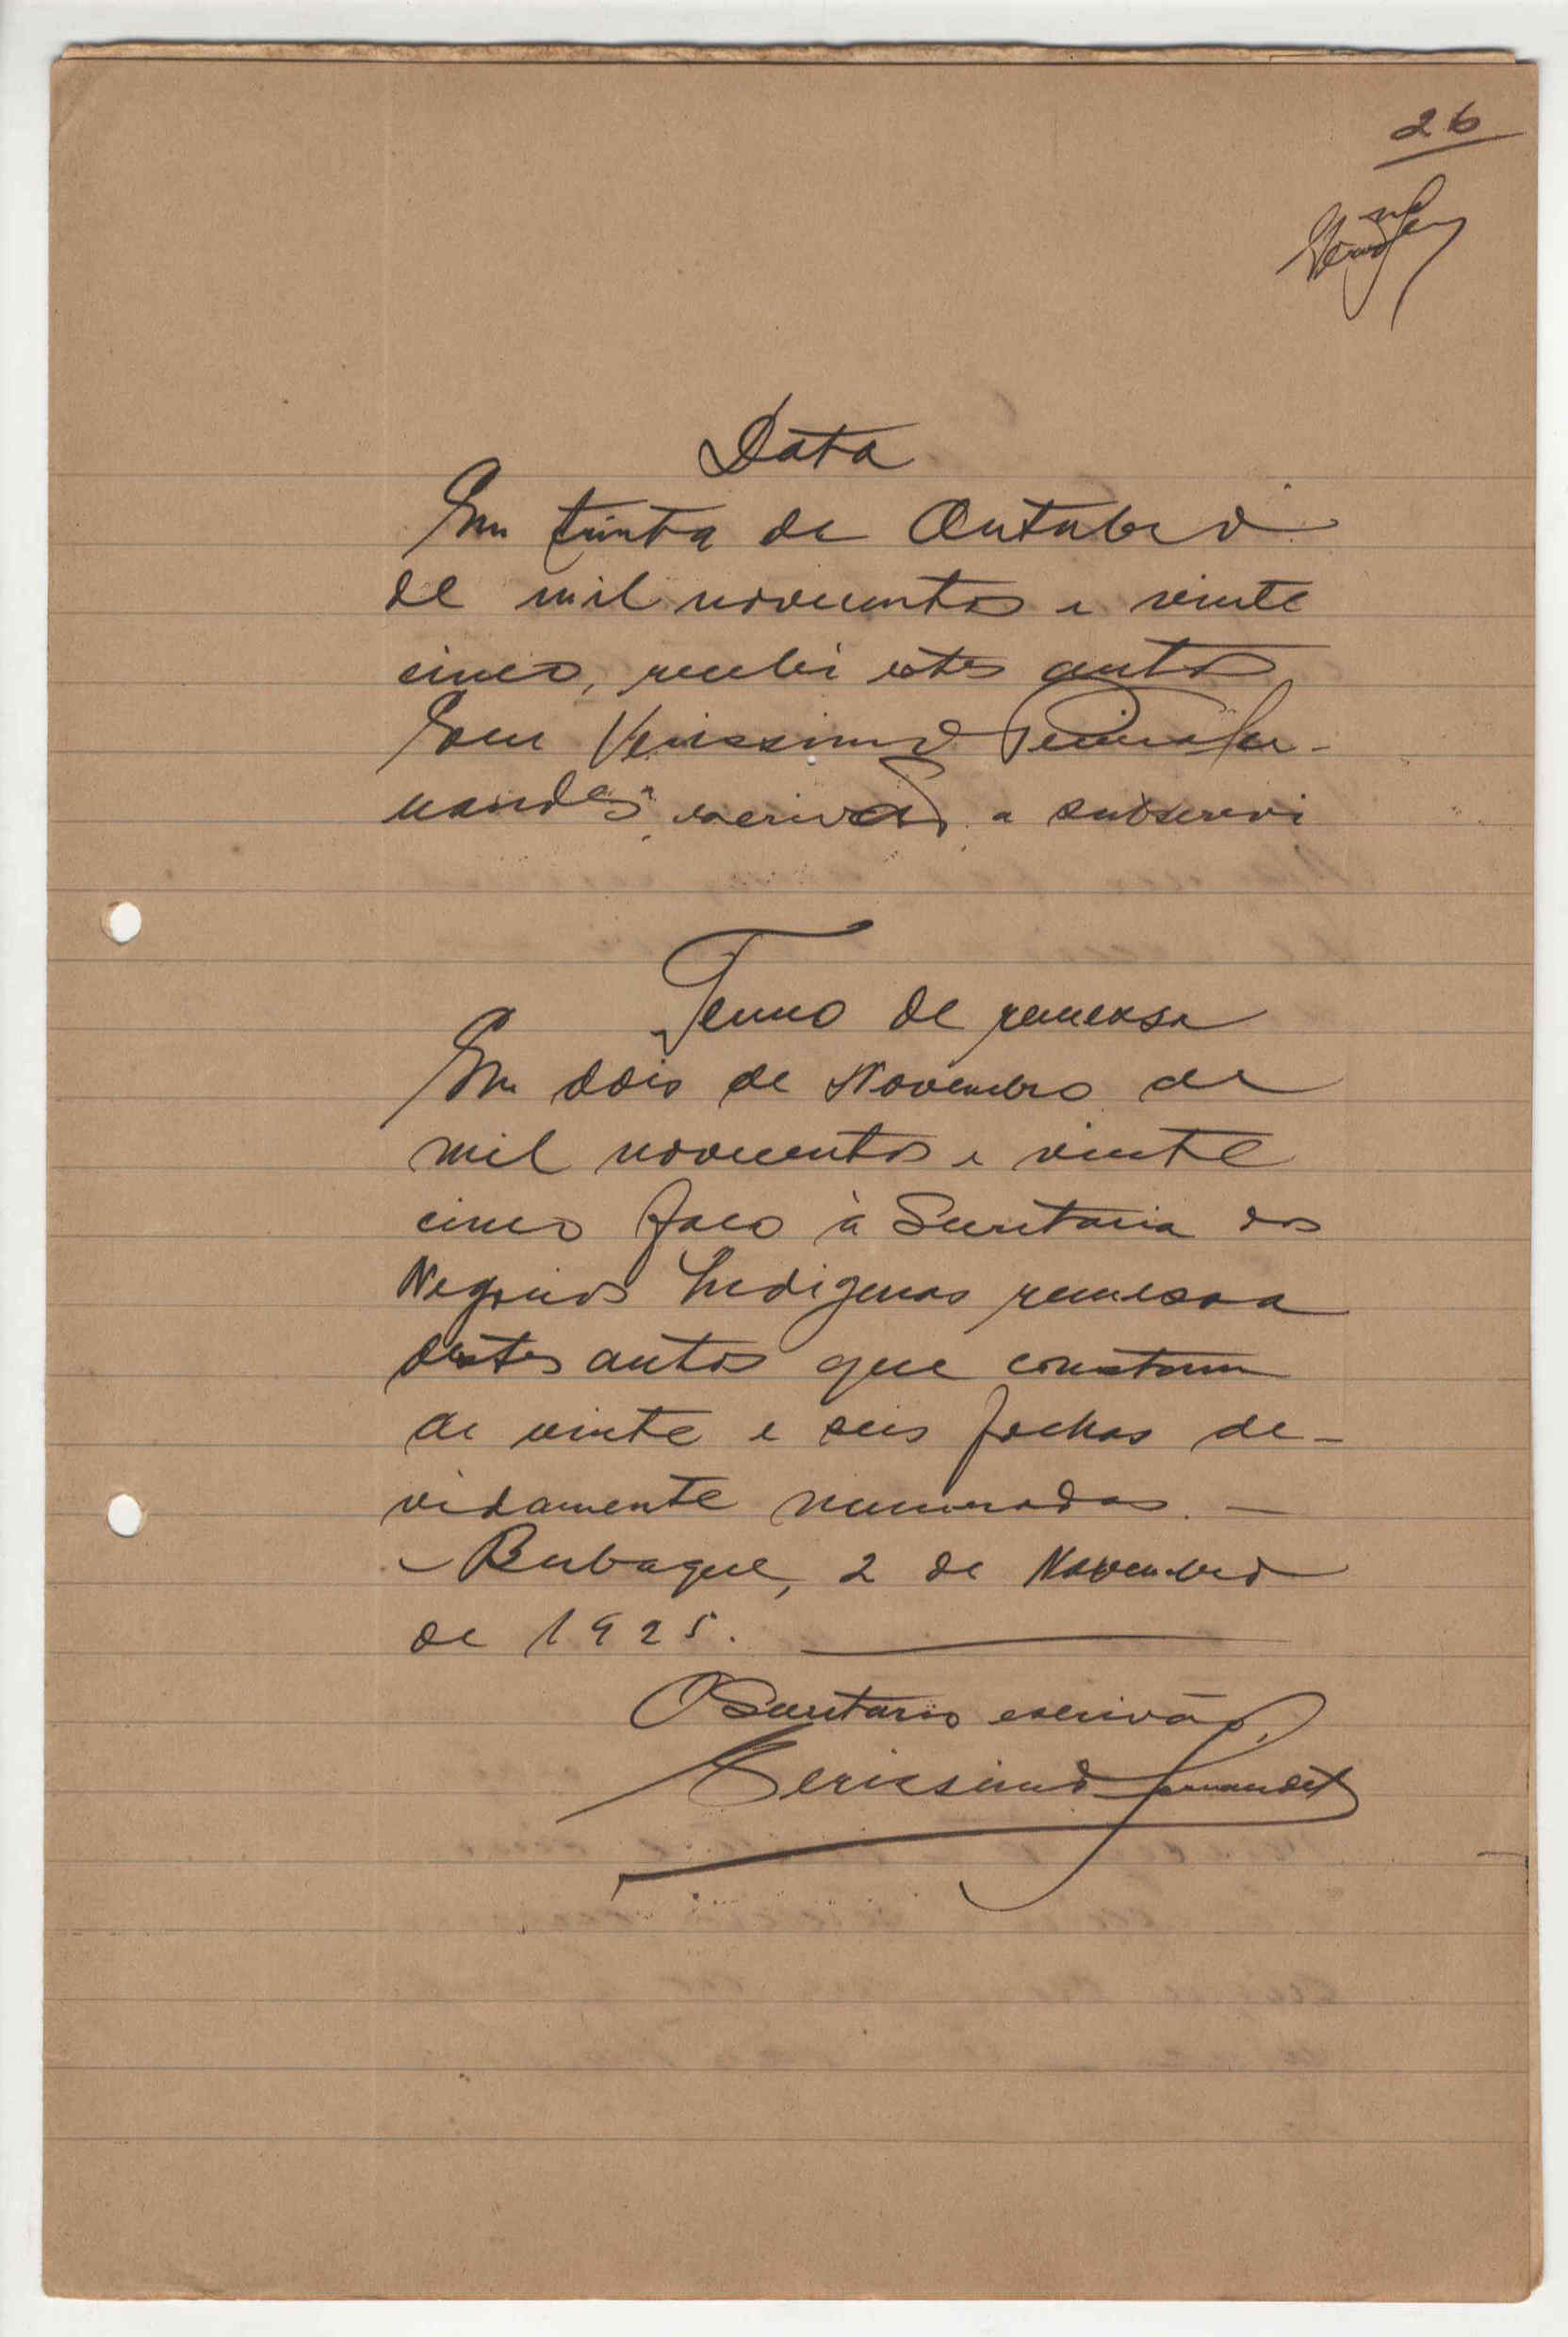 26
Data
Em trinta de Outubro
de mil novecentos e vinte
cinco, recebi estes autos
Eeu Verissimo Pereira Fer-
nandes, escrivão, a subscrevi
Termo de remessa
Em dois de Novembro de
mil novecentos e vinte
cinco faco à Secretaria dos
Negocios Indigenas remessa
destes autos que constam
de vinte e seis fochas de-
vidamente numeradas. —
— Bubaque, 2 de Novembro
de 1925. —
O Secretario escrivão,
Verissimo Fernandes